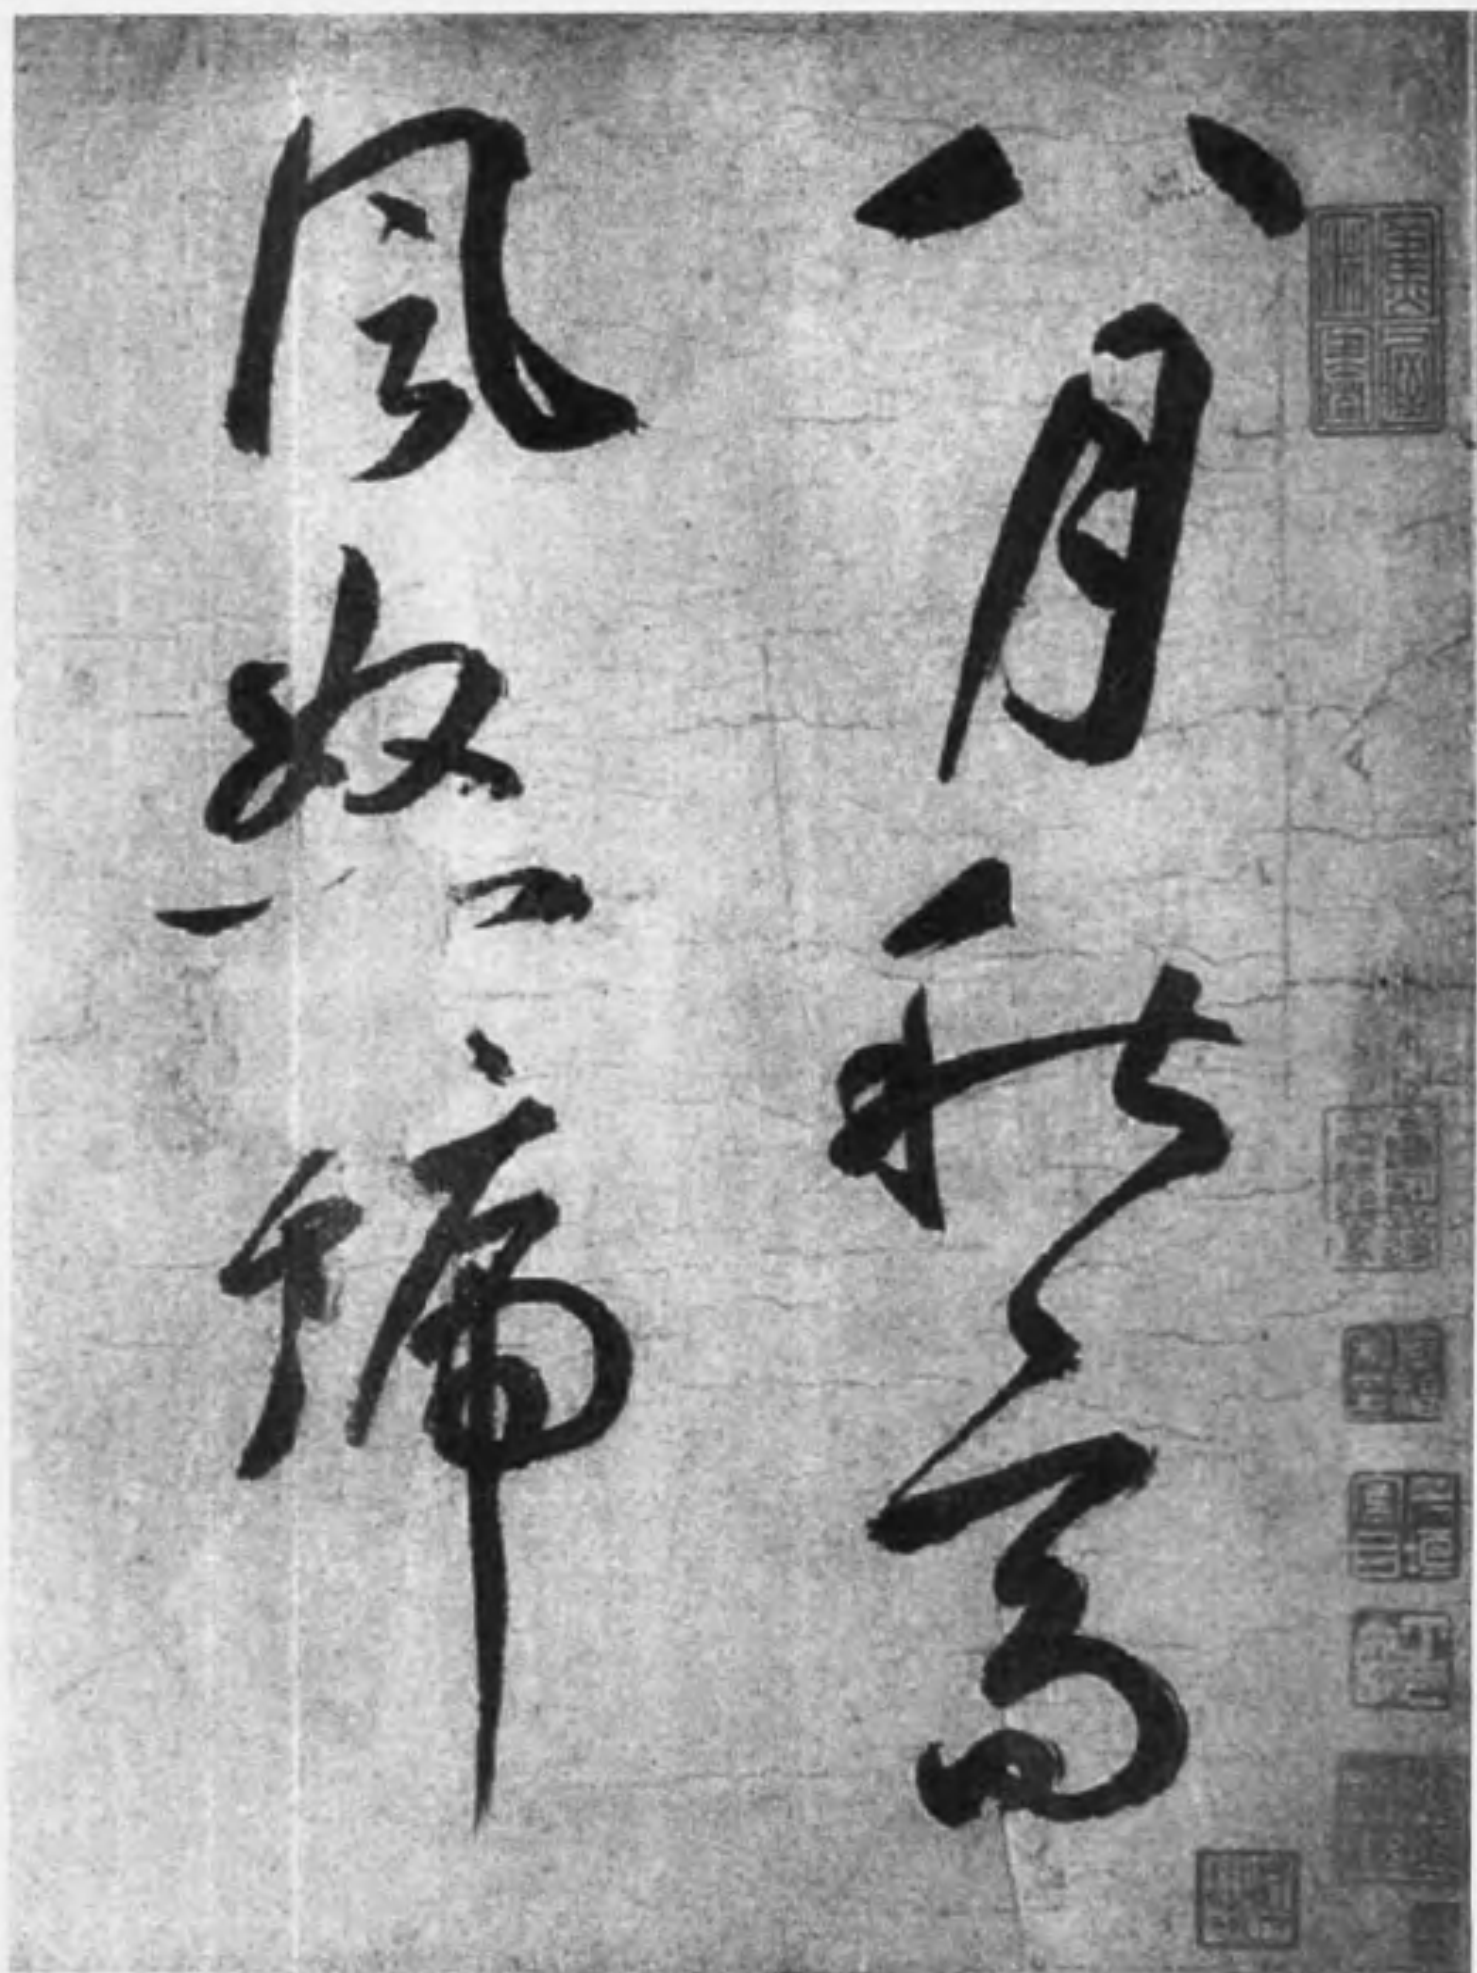 八月秋高
風怒號